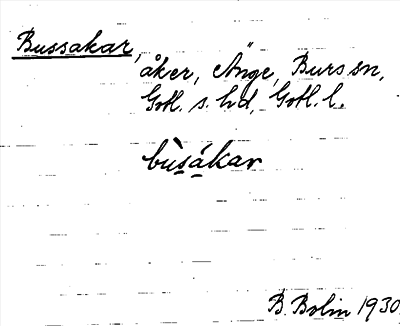 Bussakar,
åker, Änge, Burs sn,
Gotl. s. hd, Gotl. l.
bùsákar
B. Bolin 1930.